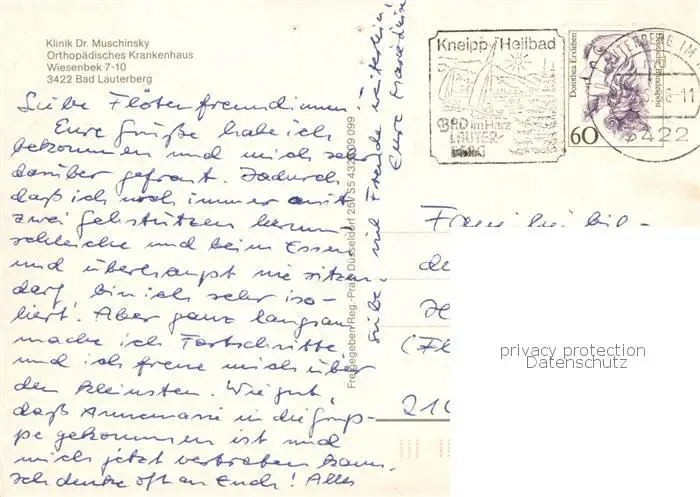 Klinik Dr. Muschinsky
Orthopädisches Krankenhaus
Wiesenbek 7-10
3422 Bad Lauterberg
Liebe Flötenfreundinnen!
Eure Grüße habe ich
bekommen und mich sehr
darüber gefreut. Dadurch
daß ich noch immer mit
zwei Gehstützen herum
schleiche und beim Essen
und überhaupt nie sitzen
darf, bin ich sehr iso-
liert. Aber ganz langsam
mache ich Fortschritte
und ich freue mich über
den kleinsten. Wie gut,
daß Annemarie in die Grup-
pe gekommen ist und
mich jetzt vertreten kann.
Ich denke oft an Euch! Alles
Liebe, viel Freude weiterhin!
Eure
Freigegeben Reg.-Präs. Düsseldorf 25 V S5 432 009 099
Kneipp-Heilbad
BAD im Harz
LAUTER-
BERG
Dorothea Erxleben
Deutsche Bundespost
60
LAUTERBERG IM
-11
3422
(Fl
210
privacy protection
Datenschutz